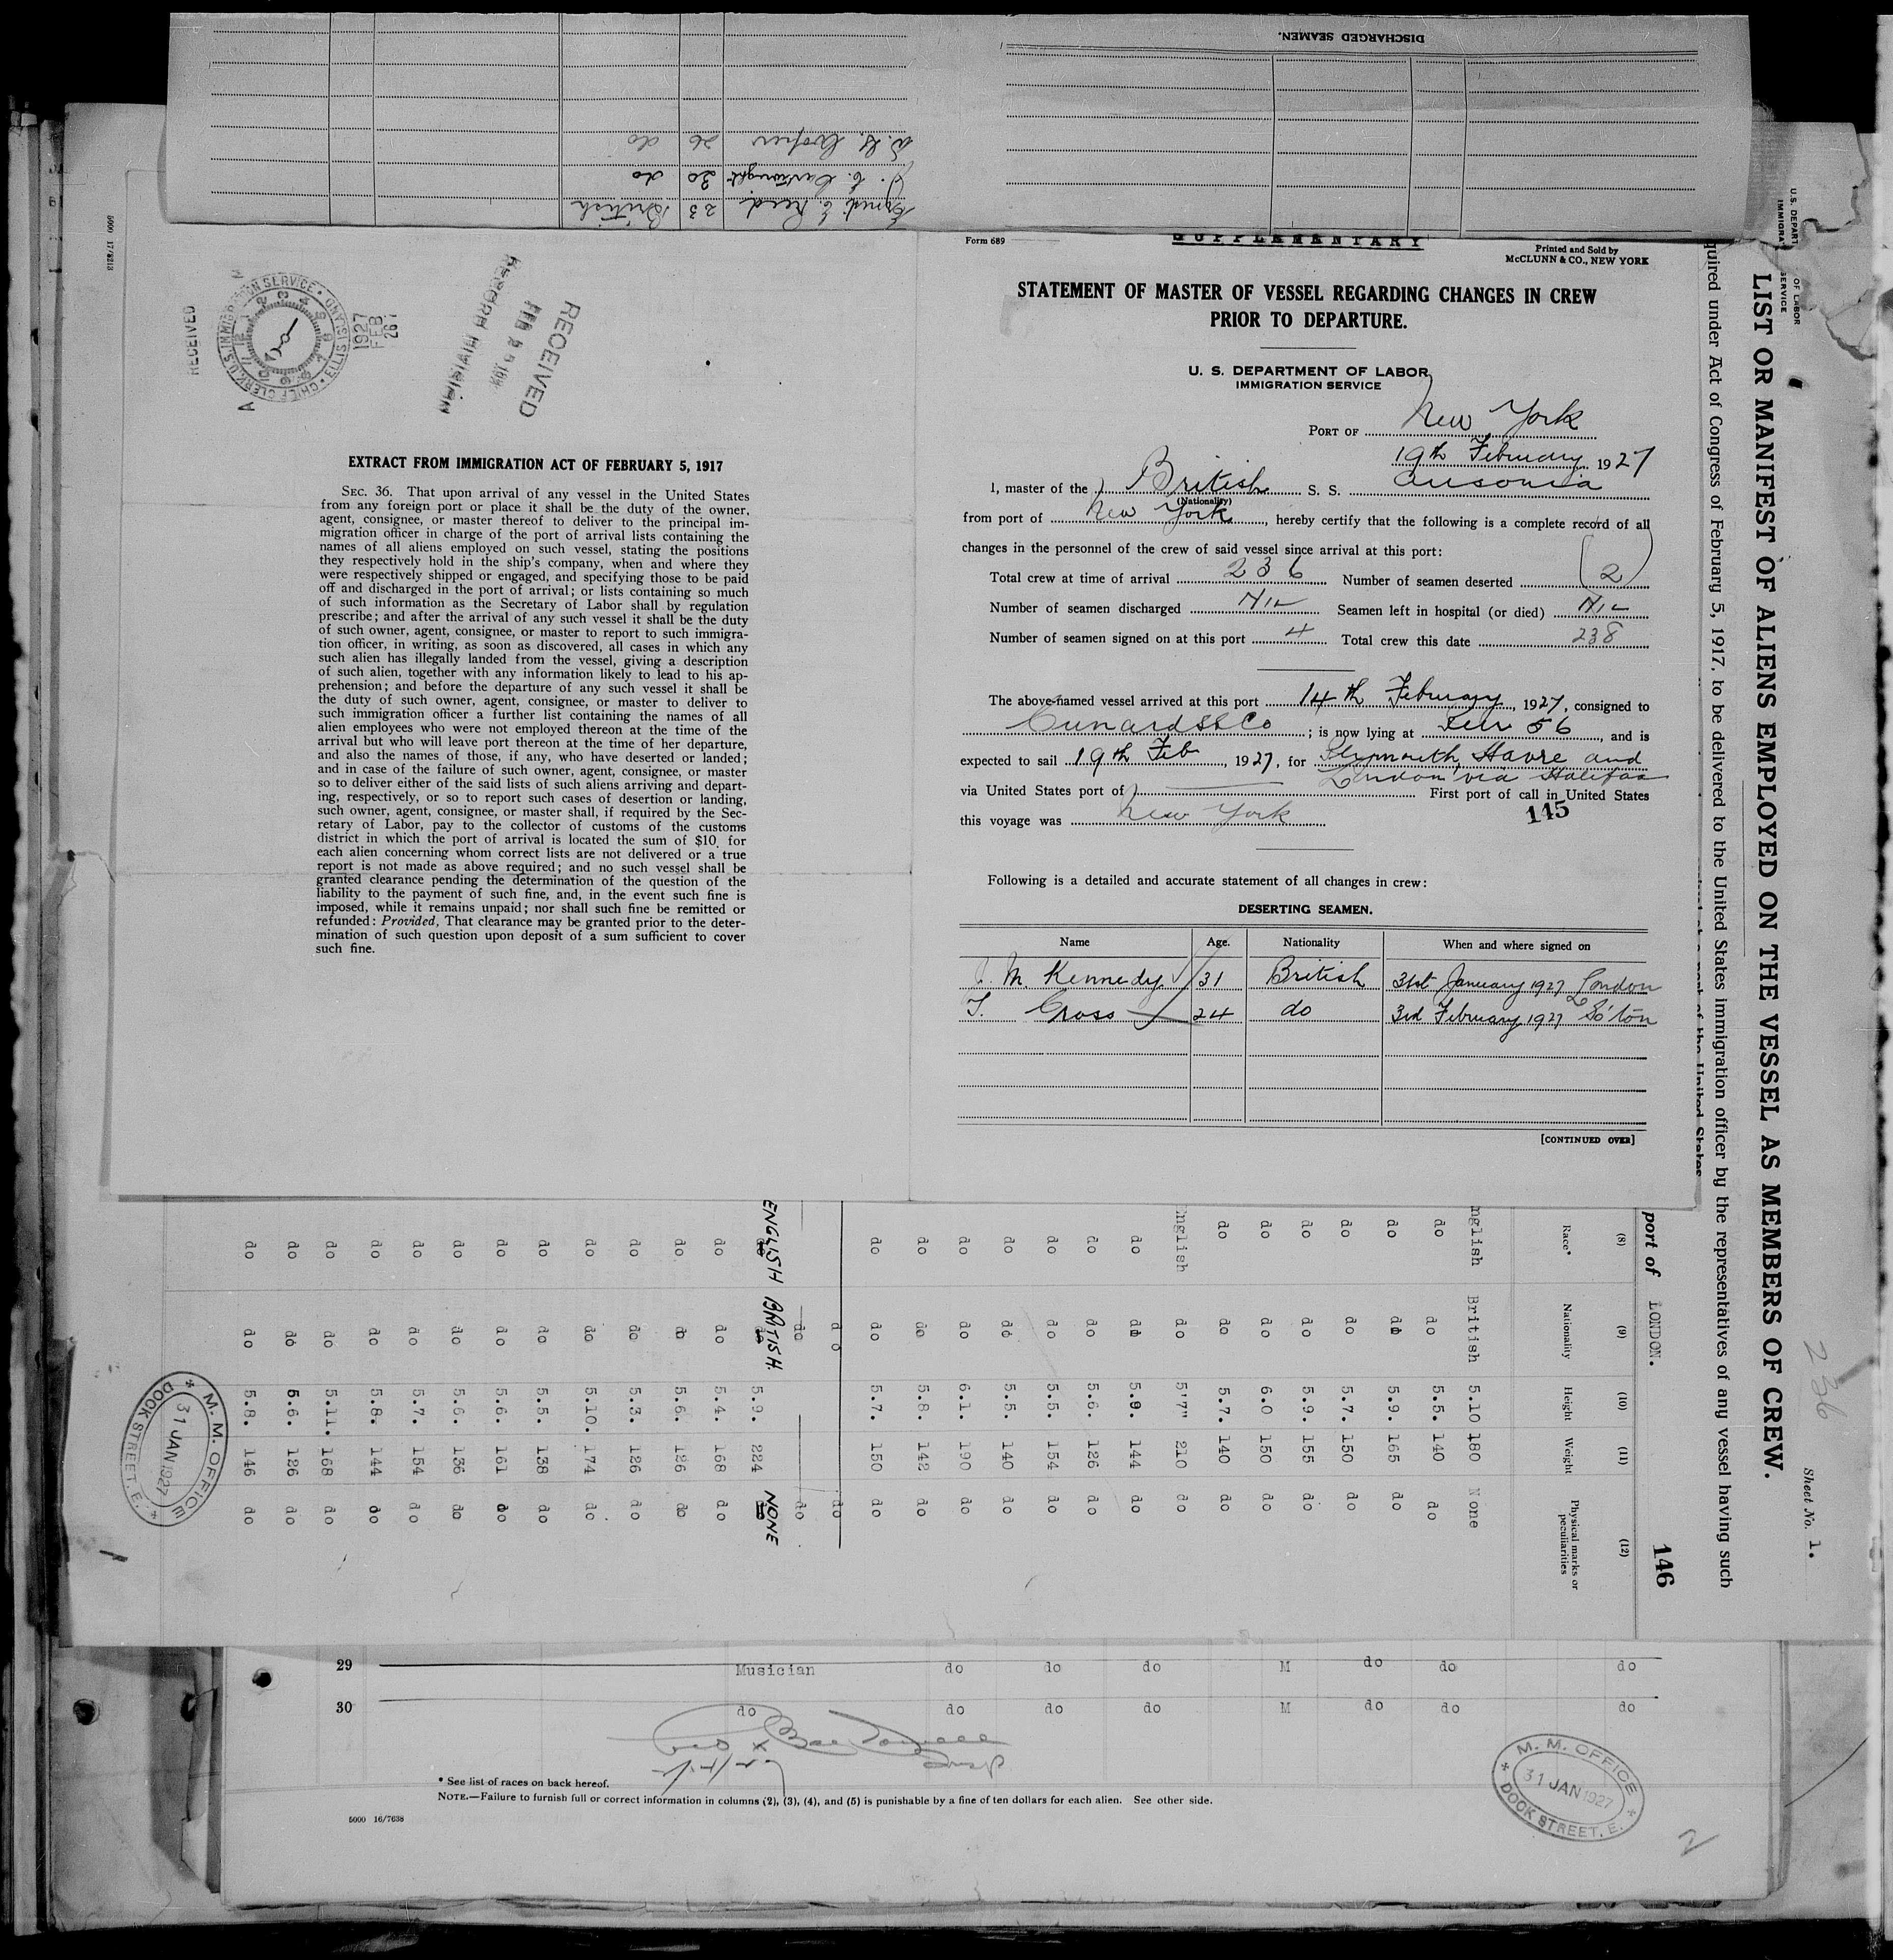 DISCHARGED SEAMEN.
Ernest E. Reed 23 British
J. C. Cartwright 30 do
26 do
5000 17/8213
RECEIVED
U.S. IMMIGRATION SERVICE · ELLIS ISLAND · CHIEF CLERK
1927
FEB
26
RECEIVED
RECORD DIVISION
EXTRACT FROM IMMIGRATION ACT OF FEBRUARY 5, 1917
SEC. 36. That upon arrival of any vessel in the United States
from any foreign port or place it shall be the duty of the owner,
agent, consignee, or master thereof to deliver to the principal im-
migration officer in charge of the port of arrival lists containing the
names of all aliens employed on such vessel, stating the positions
they respectively hold in the ship's company, when and where they
were respectively shipped or engaged, and specifying those to be paid
off and discharged in the port of arrival; or lists containing so much
of such information as the Secretary of Labor shall by regulation
prescribe; and after the arrival of any such vessel it shall be the duty
of such owner, agent, consignee, or master to report to such immigra-
tion officer, in writing, as soon as discovered, all cases in which any
such alien has illegally landed from the vessel, giving a description
of such alien, together with any information likely to lead to his ap-
prehension; and before the departure of any such vessel it shall be
the duty of such owner, agent, consignee, or master to deliver to
such immigration officer a further list containing the names of all
alien employees who were not employed thereon at the time of the
arrival but who will leave port thereon at the time of her departure,
and also the names of those, if any, who have deserted or landed;
and in case of the failure of such owner, agent, consignee, or master
so to deliver either of the said lists of such aliens arriving and depart-
ing, respectively, or so to report such cases of desertion or landing,
such owner, agent, consignee, or master shall, if required by the Sec-
retary of Labor, pay to the collector of customs of the customs
district in which the port of arrival is located the sum of $10. for
each alien concerning whom correct lists are not delivered or a true
report is not made as above required; and no such vessel shall be
granted clearance pending the determination of the question of the
liability to the payment of such fine, and, in the event such fine is
imposed, while it remains unpaid; nor shall such fine be remitted or
refunded: Provided, That clearance may be granted prior to the deter-
mination of such question upon deposit of a sum sufficient to cover
such fine.
Form 689
SUPPLEMENTARY
Printed and Sold by
McCLUNN & CO., NEW YORK
STATEMENT OF MASTER OF VESSEL REGARDING CHANGES IN CREW
PRIOR TO DEPARTURE.
U. S. DEPARTMENT OF LABOR
IMMIGRATION SERVICE
PORT OF New York
19th February 1927
I, master of the British S. S. Ausonia
(Nationality)
from port of New York, hereby certify that the following is a complete record of all
changes in the personnel of the crew of said vessel since arrival at this port:
Total crew at time of arrival 236 Number of seamen deserted (2)
Number of seamen discharged Nil Seamen left in hospital (or died) Nil
Number of seamen signed on at this port 4 Total crew this date 238
The above-named vessel arrived at this port 14th February, 1927, consigned to
Cunard SS Co; is now lying at Pier 56, and is
expected to sail 19th Feb, 1927, for Plymouth, Havre and
London via Halifax
via United States port of First port of call in United States
this voyage was New York
145
Following is a detailed and accurate statement of all changes in crew:
DESERTING SEAMEN.
Name Age. Nationality When and where signed on
M. Kennedy 31 British 31st January 1927 London
T. Gross 24 do 3rd February 1927 So'ton
[CONTINUED OVER]
U.S. DEPART OF LABOR
IMMIGRA SERVICE
LIST OR MANIFEST OF ALIENS EMPLOYED ON THE VESSEL AS MEMBERS OF CREW.
quired under Act of Congress of February 5, 1917, to be delivered to the United States immigration officer by the representatives of any vessel having such
236
Sheet No. 1.
port of LONDON.
146
(8) (9) (10) (11) (12)
Race* Nationality Height Weight Physical marks or peculiarities
nglish British 5.10 180 None
do do 5.5. 140 do
do do 5.9. 165 do
do do 5.7. 150 do
do do 5.9. 155 do
do do 6.0 150 do
do do 5.7. 140 do
English do 5'7" 210 do
do do 5.9. 144 do
do do 5.6. 126 do
do do 5.5. 154 do
do do 5.5. 140 do
do do 6.1. 190 do
do do 5.8. 142 do
do do 5.7. 150 do
do do
do do
ENGLISH BRITISH. 5.9. 224 NONE
do do 5.4. 168 do
do do 5.6. 126 do
do do 5.3. 126 do
do do 5.10. 174 do
do do 5.5. 138 do
do do 5.6. 161 do
do do 5.6. 136 do
do do 5.7. 154 do
do do 5.8. 144 do
do do 5.11. 168 do
do do 5.6. 126 do
do do 5.8. 146 do
M. M. OFFICE
31 JAN 1927
DOCK STREET. E.
29 Musician do do do M do do do
30 do do do do M do do do
* See list of races on back hereof.
NOTE.—Failure to furnish full or correct information in columns (2), (3), (4), and (5) is punishable by a fine of ten dollars for each alien. See other side.
5000 16/7638
M. M. OFFICE
31 JAN 1927
DOCK STREET. E.
2